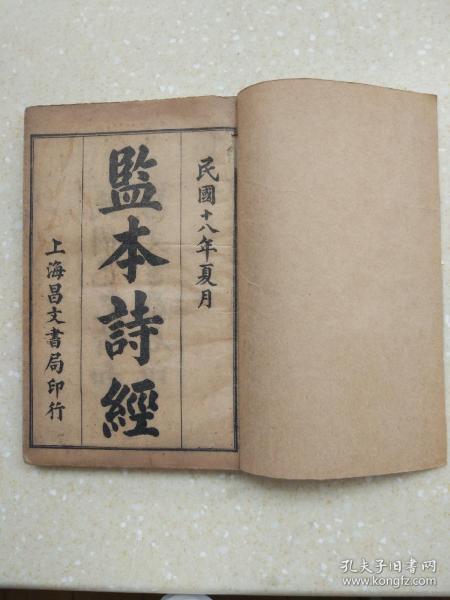 民國十八年夏月
監本詩經
上海昌文書局印行
孔夫子旧书网
www.kongfz.com